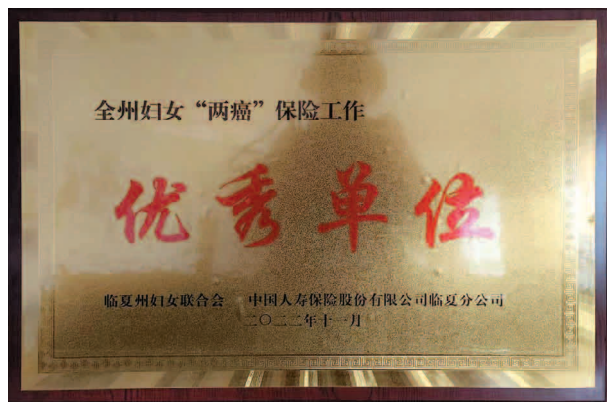 全州妇女“两癌”保险工作
优秀单位
临夏州妇女联合会 中国人寿保险股份有限公司临夏分公司
二〇二二年十一月